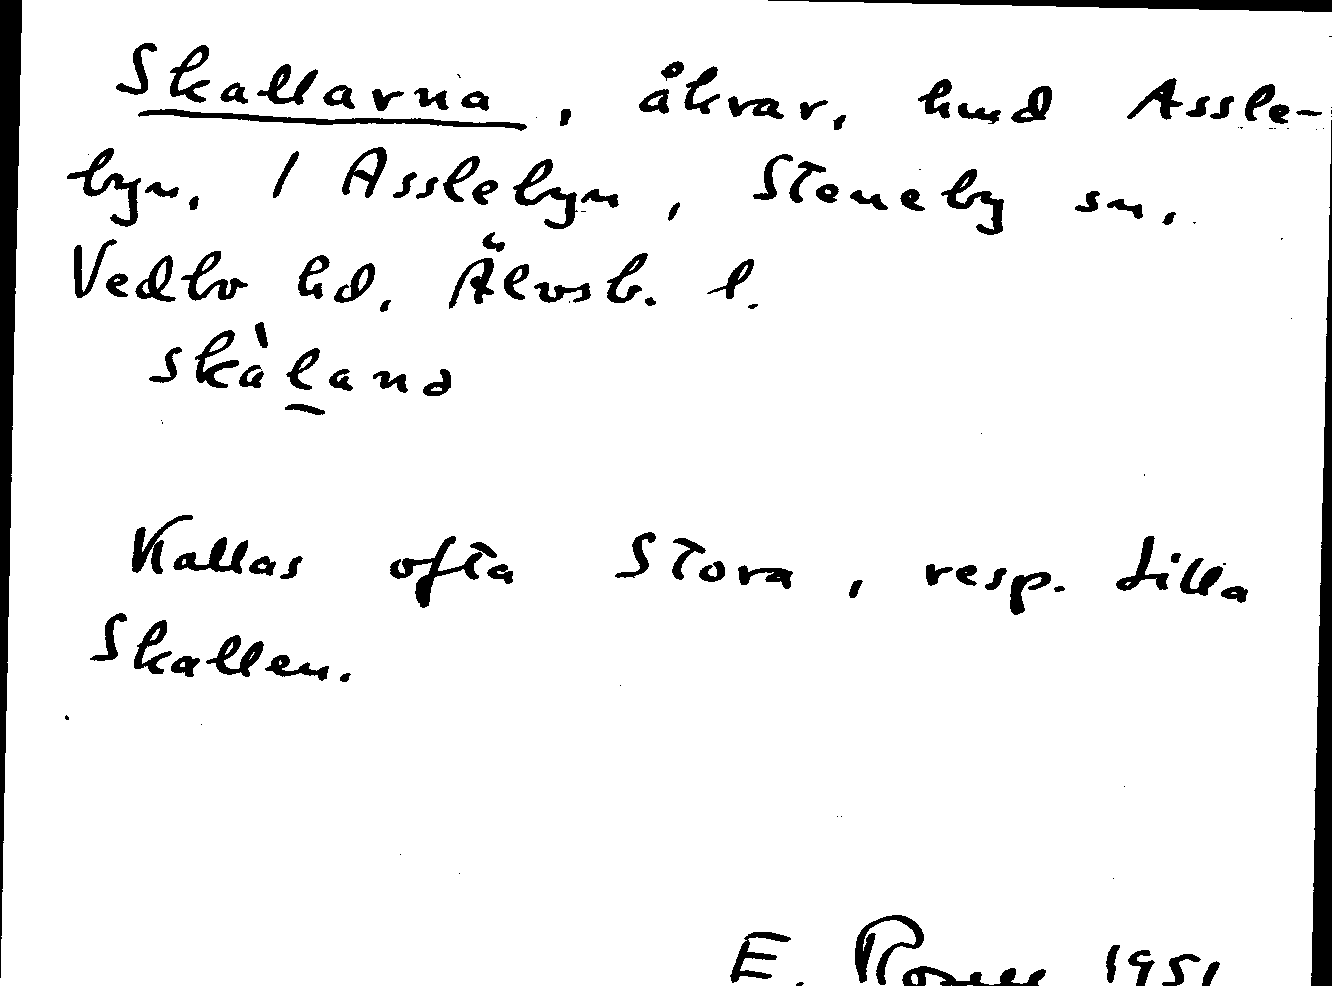 Skallarna, åkrar, hmd Assle-
byn, 1 Asslebyn, Steneby sn,
Vedbo hd, Älvsb. l.
skàl̲and
Kallas ofta Stora, resp. Lilla
Skallen.
E. 1951